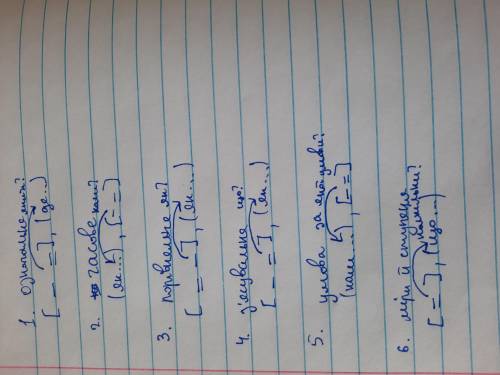 1. означальне яких?
[ _ _ = ], (де...)
2. часове коли?
(як...), [ = = ]
3. порівняльне як?
[ = = _ ], (як...)
4. з'ясувальне що?
[ _ = ], (як...)
5. умова за якої умови?
(коли...), [ = = ]
6. міри й ступеня
наскільки?
[ _ = ], (що...)